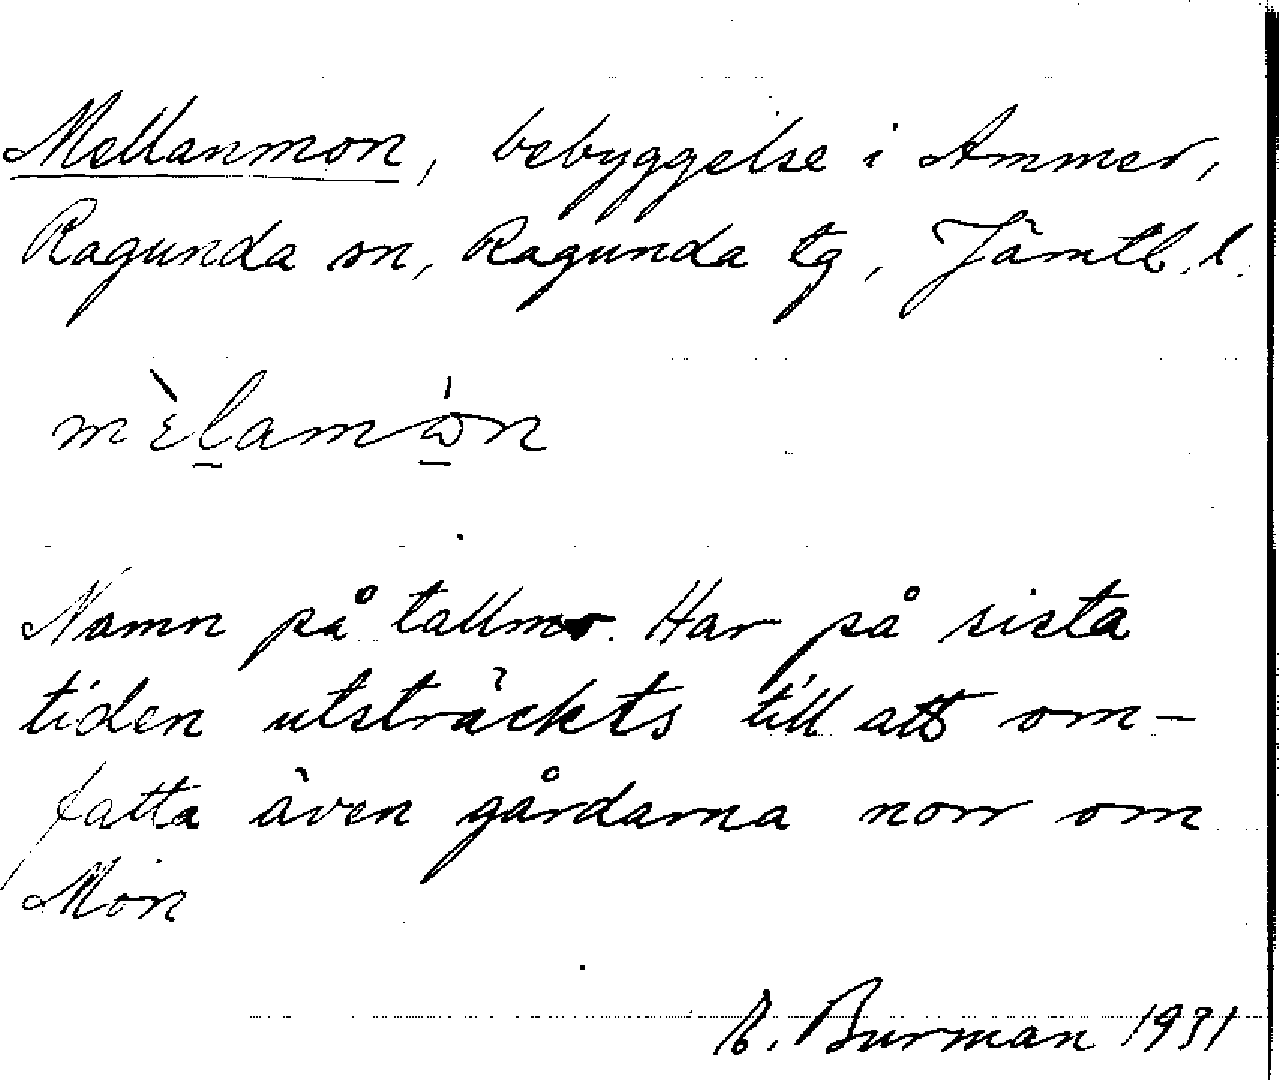 Mellanmon, bebyggelse i Ammer,
Ragunda sn, Ragunda tg, Jämtl. l.
mὲlamω̇n
Namn på tallmo. Har på sista
tiden utsträckts till att om-
fatta även gårdarna norr om
Mon
B. Burman 1931